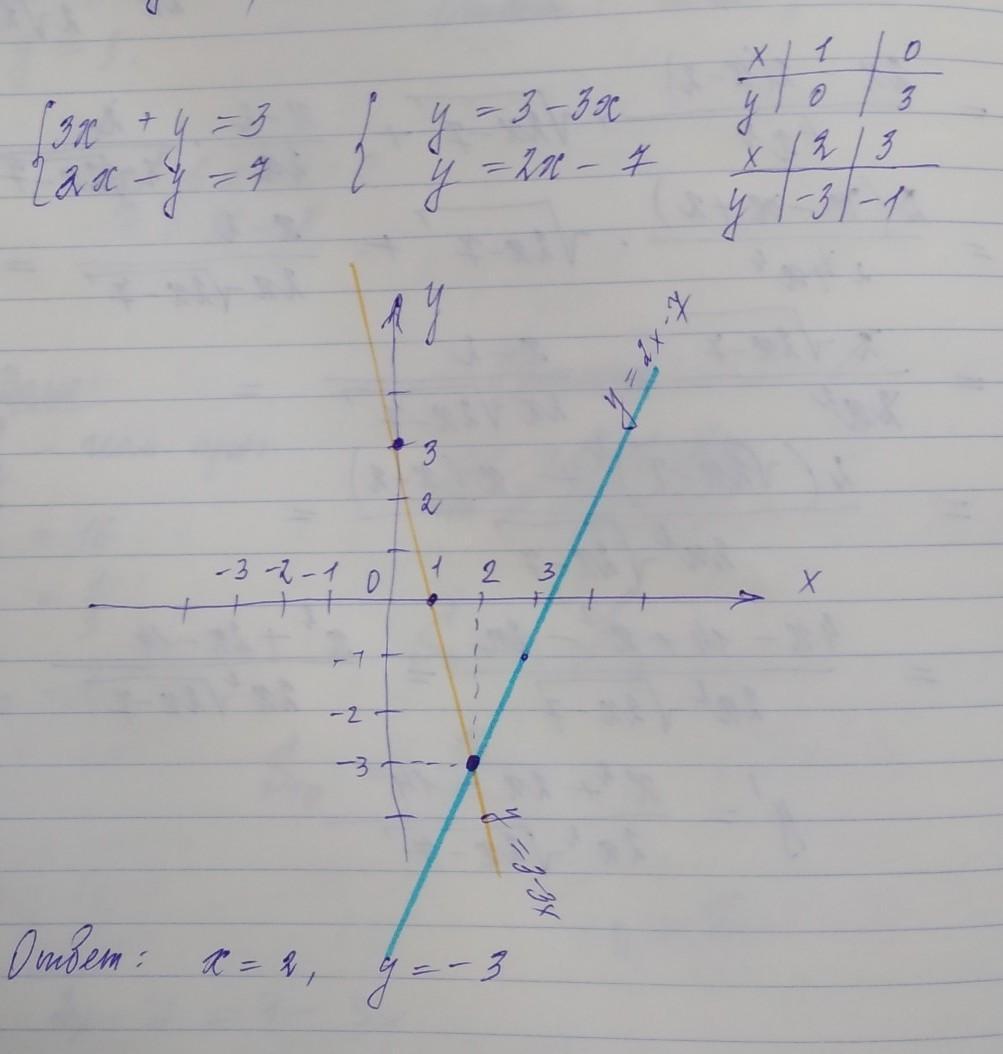 {3x + y = 3
{2x - y = 7
{y = 3 - 3x
{y = 2x - 7
x | 1 | 0
y | 0 | 3
x | 2 | 3
y | -3 | -1
y
y = 2x-7
3
2
-3 -2 -1 0 1 2 3 x
-1
-2
-3
y=3-3x
Ответ: x = 2, y = -3